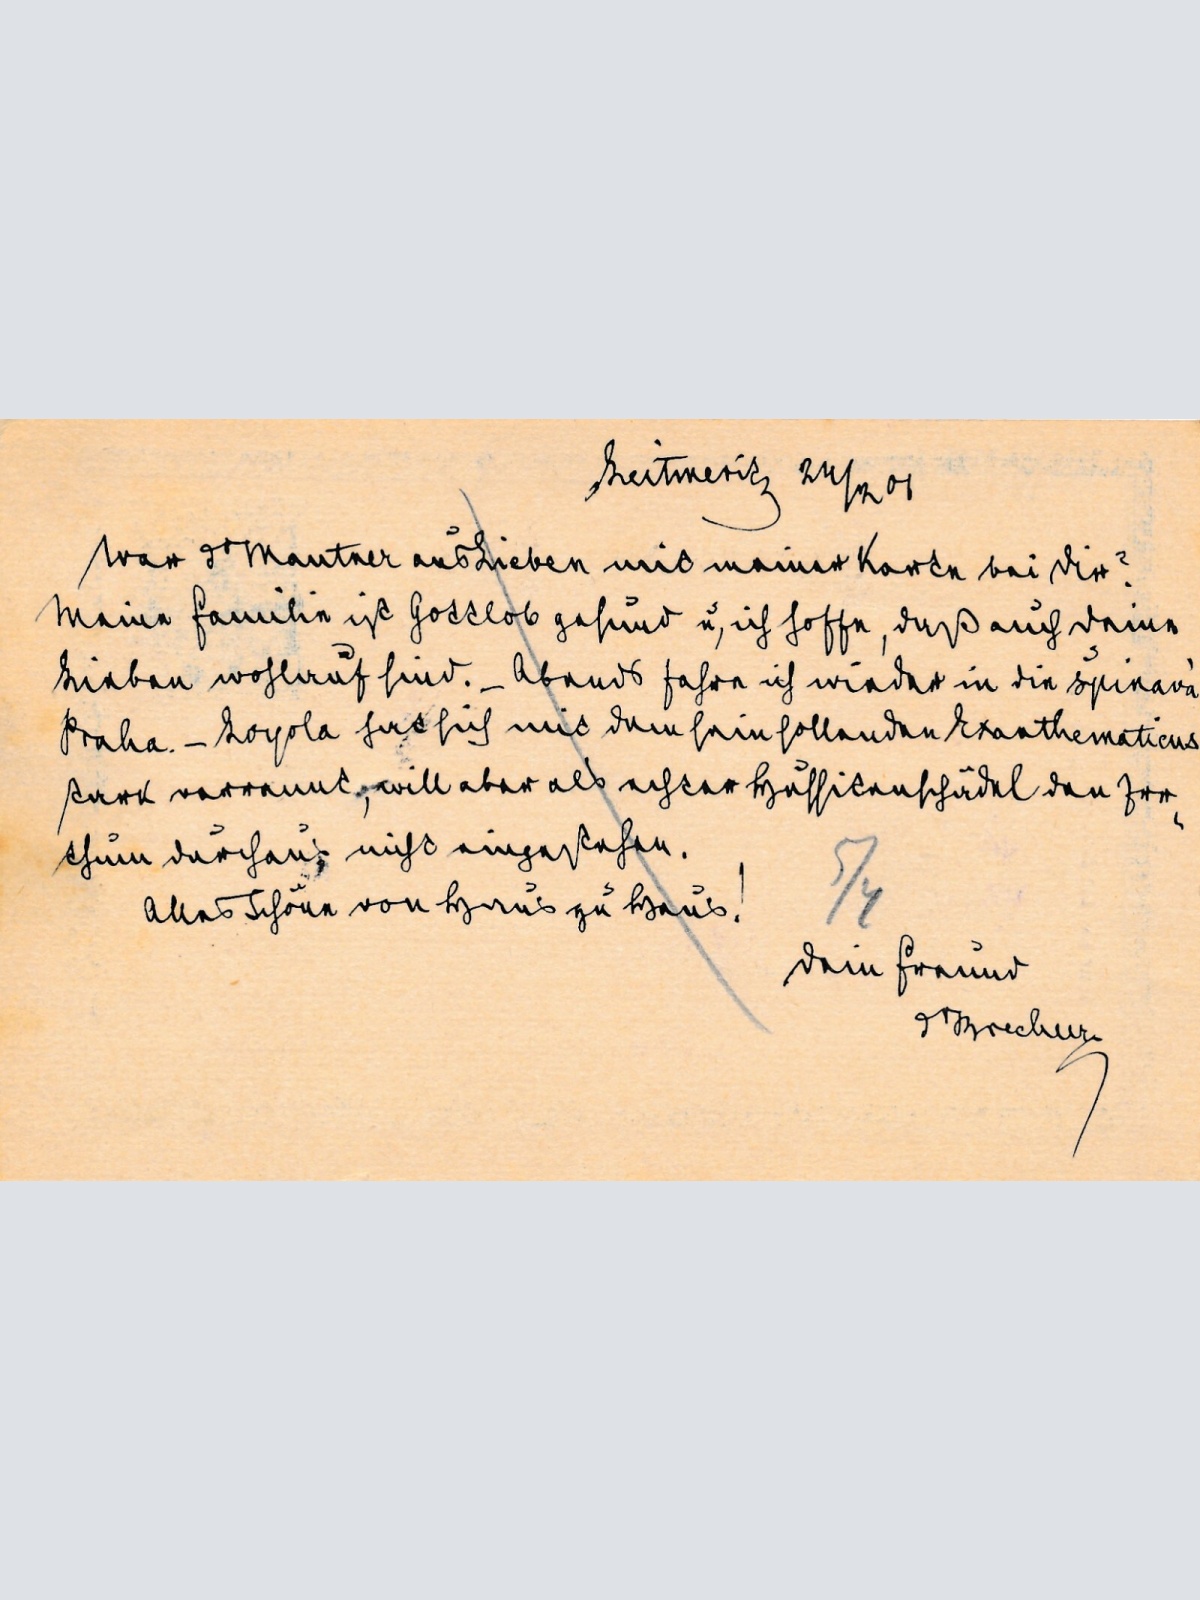 Leitmeritz 24/2 01
War Dr Mautner aus Lieben mit meiner Karte bei Dir?
Meine Familie ist Gottlob gesund u, ich hoffe, daß auch deine
Lieben wohlauf sind. – Abends fahre ich wieder in die špinavá
Praha. – Loyola hat sich mit dem sein sollenden Exanthematicus
stark verrannt, will aber als echter Hussitenschädel den Irr-
thum durchaus nicht eingestehen.
Alles Schöne von Haus zu Haus!
5/4
Dein Freund
Dr Brecher